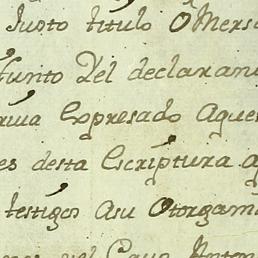 Justo titulo O Mers
funto Del declaran
riua Expresado Aque
es desta Escriptura a
testigos Asu Otorgam